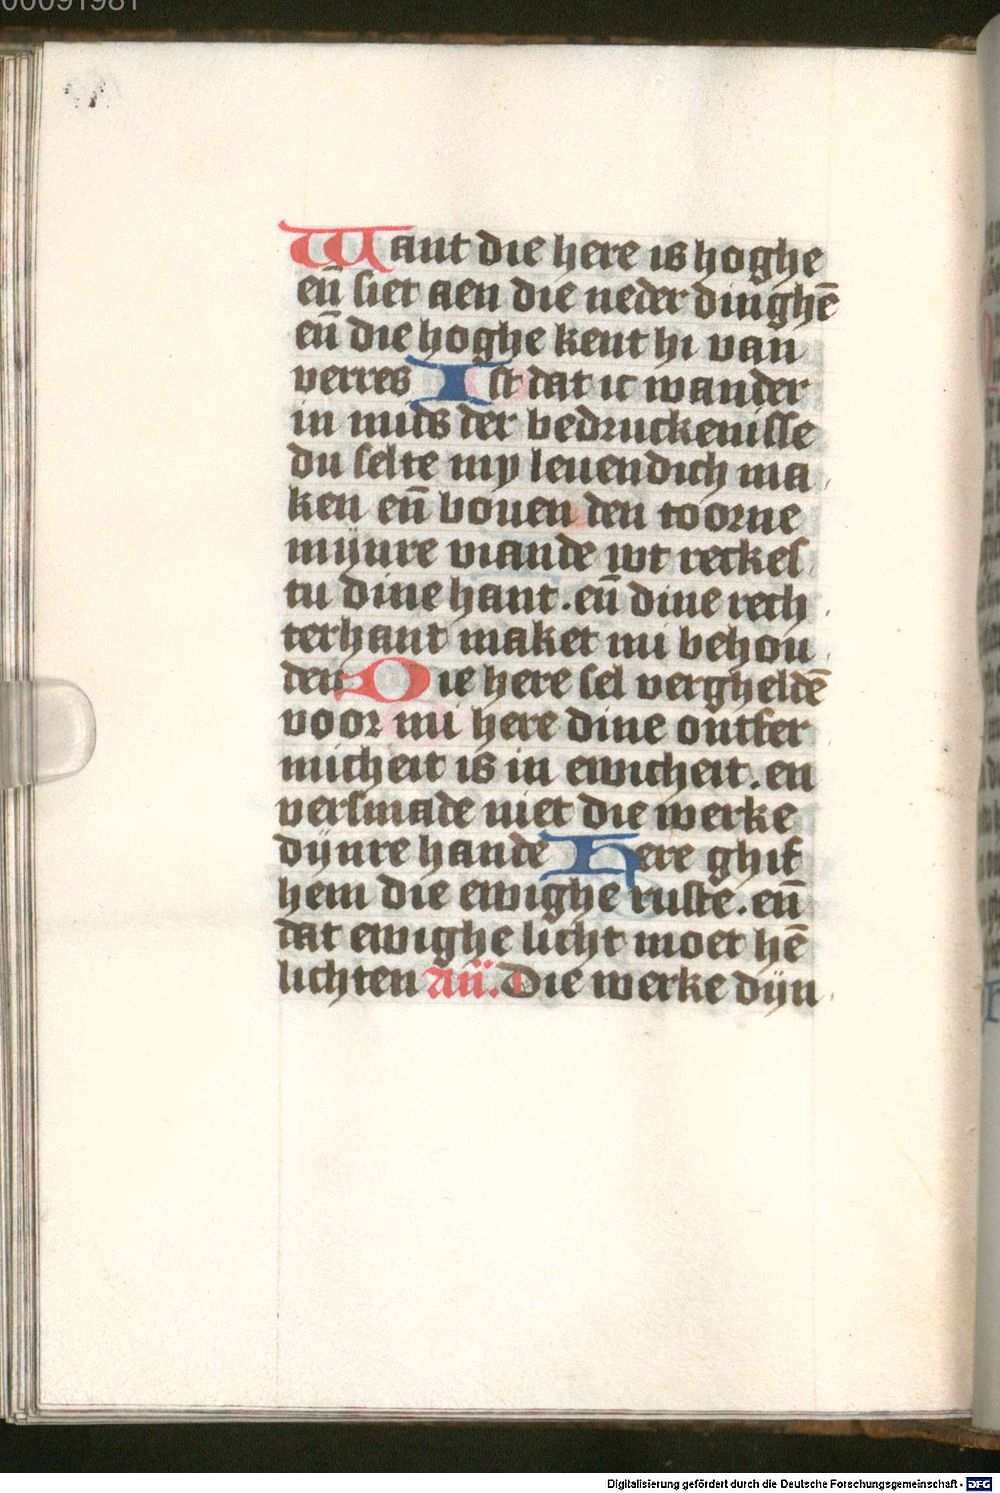 00091981
Want die here is hoghe
en̄ siet aen die neder dinghē
en̄ die hoghe kent hi van
verres Ist dat ic wander
in mids der bedruckenisse
du selte my leuendich ma
ken en̄ bouen den toorne
mijnre viande wt reckes
tu dine hant. en̄ dine rech
terhant maket mi behou
den Die here sel vergheldē
voor mi here dine ontfer
micheit is in ewicheit. en
versmade niet die werke
dijnre hande Here ghif
hem die ewighe ruste. en̄
dat ewighe licht moet hē
lichten An̄. Die werke dijn
Digitalisierung gefördert durch die Deutsche Forschungsgemeinschaft - DFG